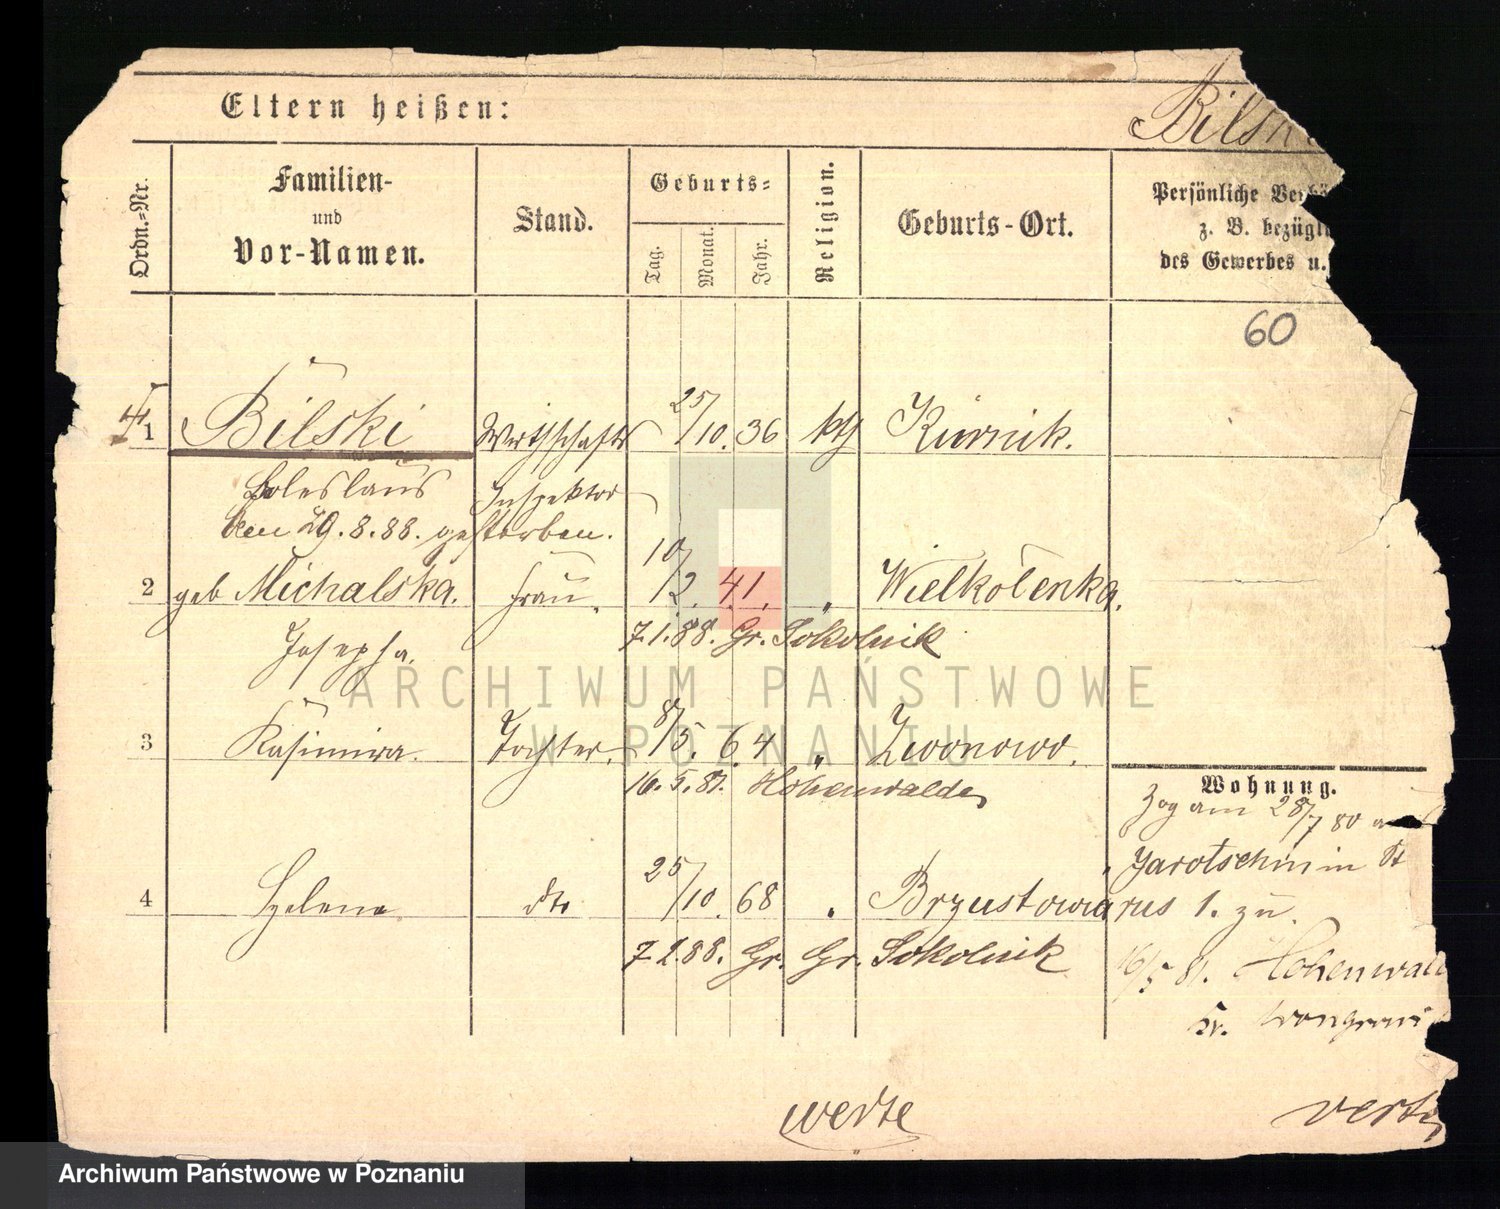 Eltern heißen:
Ordn.-Nr.
Familien-
und
Vor-Namen.
Stand.
Geburts-
Tag.
Monat.
Jahr.
Religion.
Geburts-Ort.
Persönliche
z. B.
des Gewerbes u.
60
1 Bilski Wirthschafts 25/10. 36 kth Kurnik.
Boleslaus Inspektor
den 29.8.88. gestorben.
2 geb Michalska. Frau. 10/2. 41. " Wielkolenka.
Josepha. 7.1.88. Gr. Sokolnik
3 Kasimira. Tochter. 8/5. 64 " Zwonowo.
16.5.81. Hohenwalde
Wohnung.
Zog am 28/7 80
Jarotschin in
4 Helene dto 25/10. 68 " Brzustowia
1. zu.
7.1.88. Gr. Gr. Sokolnik
16/5 81.
Kr.
verte
ARCHIWUM PAŃSTWOWE
W POZNANIU
Archiwum Państwowe w Poznaniu